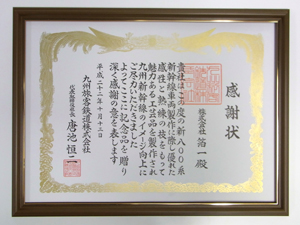 感謝状
株式会社 詒一殿
貴社はこの度の新八〇〇系
新幹線車両製作に際し優れた
感性と熟練の技をもって
魅力ある工芸品を製作され
九州新幹線のイメージ向上に
ご尽力いただきました
よってここに記念品を贈り
深く感謝の意を表します
平成二十二年十月十三日
九州旅客鉄道株式会社
代表取締役社長 唐池恒二